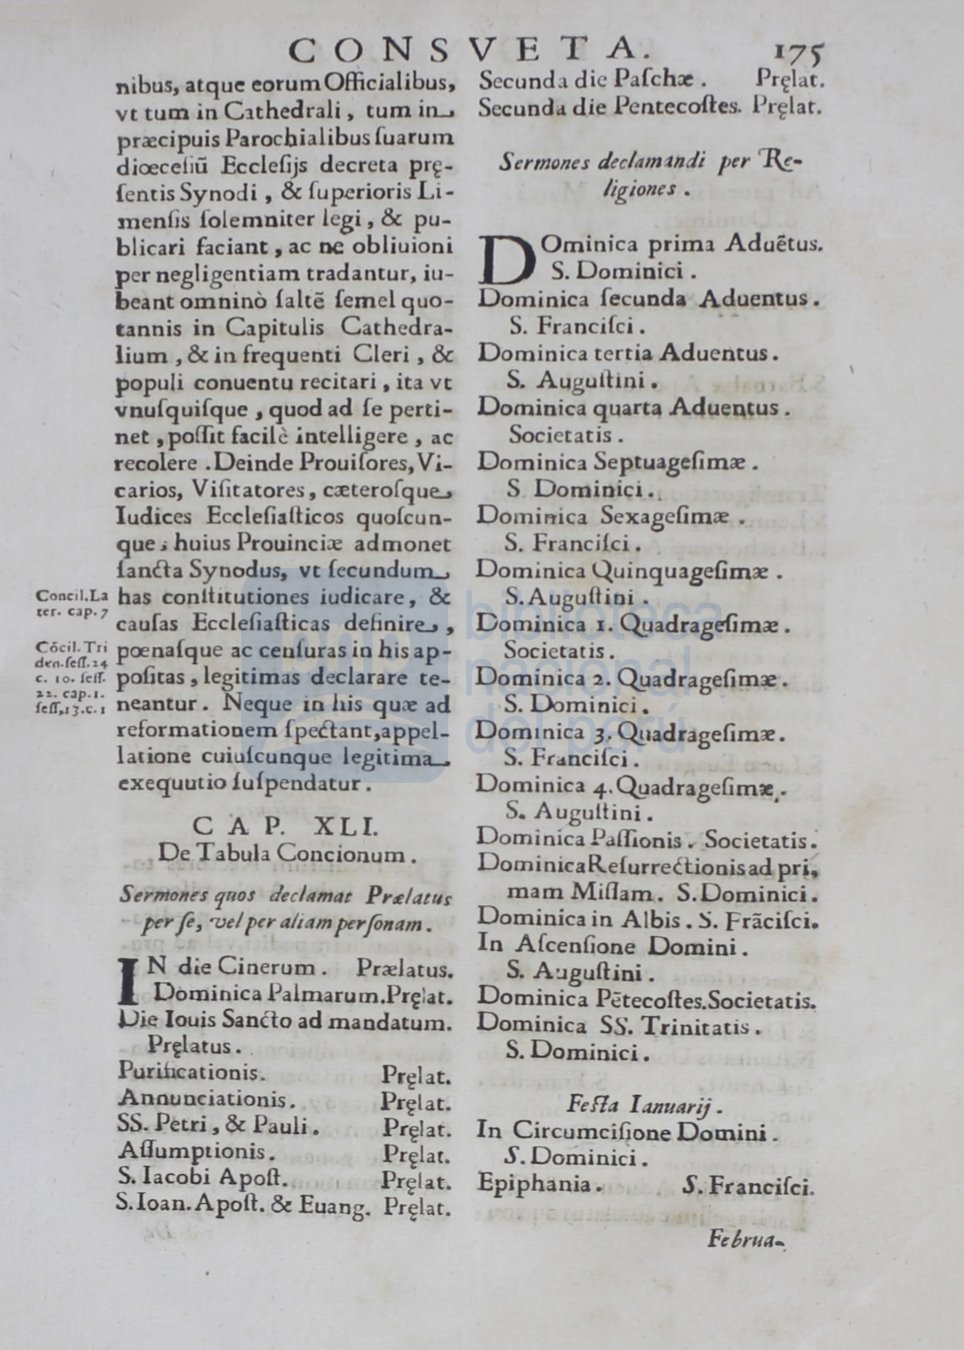 CONSVETA. 175
nibus, atque eorum Officialibus,
vt tum in Cathedrali, tum in
præcipuis Parochialibus ſuarum
diœceſiū Eccleſijs decreta prę-
ſentis Synodi, & ſuperioris Li-
menſis ſolemniter legi, & pu-
blicari faciant, ac ne obliuioni
per negligentiam tradantur, iu-
beant omninò ſaltē ſemel quo-
tannis in Capitulis Cathedra-
lium, & in frequenti Cleri, &
populi conuentu recitari, ita vt
vnuſquiſque, quod ad ſe perti-
net, poſſit facilè intelligere, ac
recolere. Deinde Prouiſores, Vi-
carios, Viſitatores, cæteroſque
Iudices Eccleſiaſticos quoſcun-
que; huius Prouinciæ admonet
ſancta Synodus, vt ſecundum
has conſtitutiones iudicare, &
cauſas Eccleſiaſticas definire,
pœnaſque ac cenſuras in his ap-
poſitas, legitimas declarare te-
neantur. Neque in his quæ ad
reformationem ſpectant, appel-
latione cuiuſcunque legitima
exequutio ſuſpendatur.
Concil. La
ter. cap. 7
Cōcil. Tri
den. ſeſſ. 24
c. 10. ſeſſ.
22. cap. 1.
ſeſſ. 13. c. 1
CAP. XLI.
De Tabula Concionum.
Sermones quos declamat Prælatus
per ſe, vel per aliam perſonam.
IN die Cinerum. Prælatus.
Dominica Palmarum. Pręlat.
Die Iouis Sancto ad mandatum.
Pręlatus.
Purificationis. Pręlat.
Annunciationis. Pręlat.
SS. Petri, & Pauli. Pręlat.
Aſſumptionis. Pręlat.
S. Iacobi Apoſt. Pręlat.
S. Ioan. Apoſt. & Euang. Pręlat.
Secunda die Paſchæ. Pręlat.
Secunda die Pentecoſtes. Pręlat.
Sermones declamandi per Re-
ligiones.
DOminica prima Aduētus.
S. Dominici.
Dominica ſecunda Aduentus.
S. Franciſci.
Dominica tertia Aduentus.
S. Auguſtini.
Dominica quarta Aduentus.
Societatis.
Dominica Septuageſimæ.
S. Dominici.
Dominica Sexageſimæ.
S. Franciſci.
Dominica Quinquageſimæ.
S. Auguſtini.
Dominica 1. Quadrageſimæ.
Societatis.
Dominica 2. Quadrageſimæ.
S. Dominici.
Dominica 3. Quadrageſimæ.
S. Franciſci.
Dominica 4. Quadrageſimæ.
S. Auguſtini.
Dominica Paſſionis. Societatis.
Dominica Reſurrectionis ad pri,
mam Miſſam. S. Dominici.
Dominica in Albis. S. Frāciſci.
In Aſcenſione Domini.
S. Auguſtini.
Dominica Pētecoſtes. Societatis.
Dominica SS. Trinitatis.
S. Dominici.
Feſta Ianuarij.
In Circumciſione Domini.
S. Dominici.
Epiphania. S. Franciſci.
Februa-
bnp
biblioteca
nacional
del perú